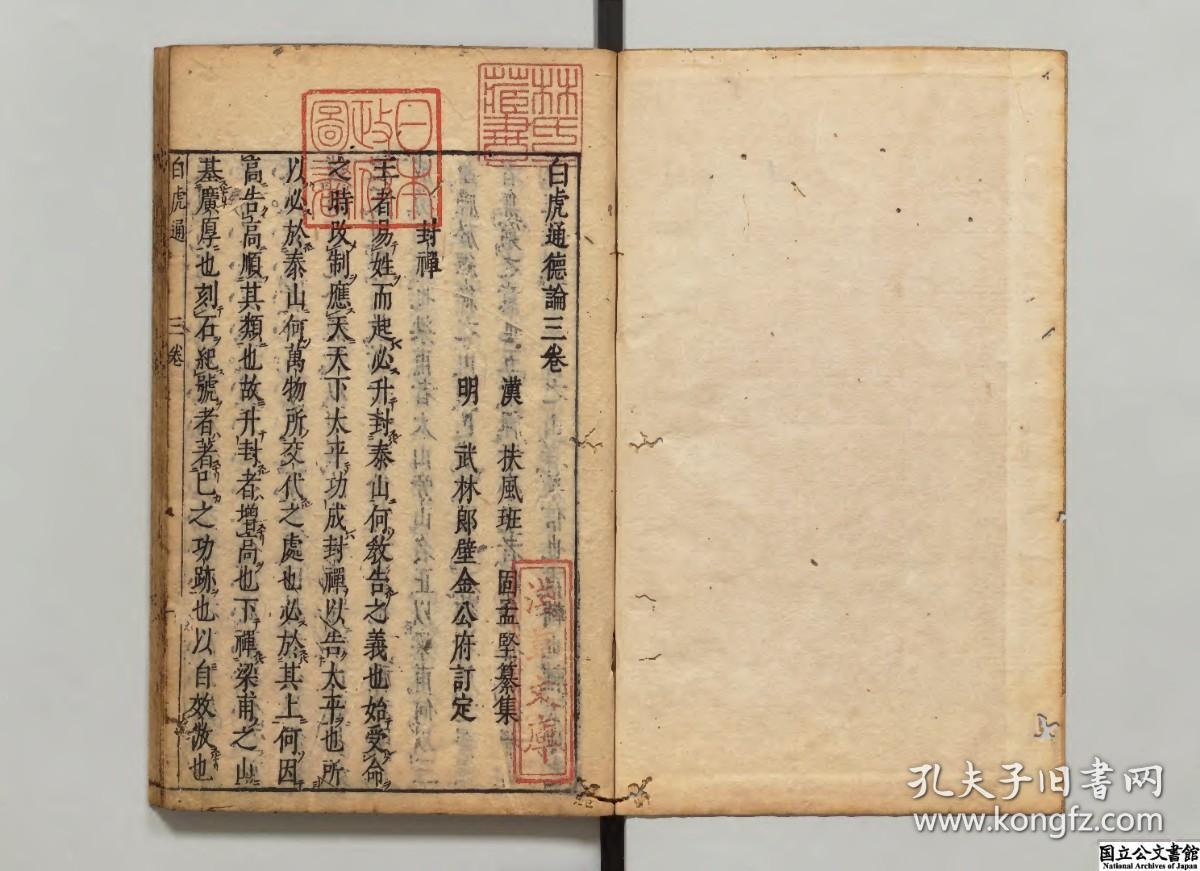 白虎通德論三卷
漢 扶風班 固孟堅纂集
明 武林郎壁金公府訂定
封禪
王者易姓而起必升封泰山何敎告之義也始受命
之時改制應天天下太平功成封禪以告太平也所
以必於泰山何萬物所交代之處也必於其上何因
高告高順其類也故升封者增高也下禪梁甫之山
基廣厚也刻石紀號者著巳之功跡也以自效倣也
白虎通 三卷
林氏藏書
日本政府圖書
淺草文庫
孔夫子旧书网
www.kongfz.com
国立公文書館
National Archives of Japan